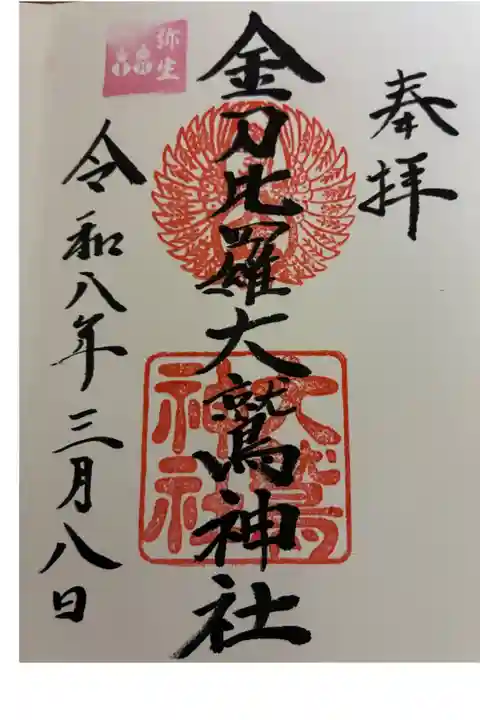 奉拝
金刀比羅大鷲神社
大鷲神社
弥生
令和八年三月八日